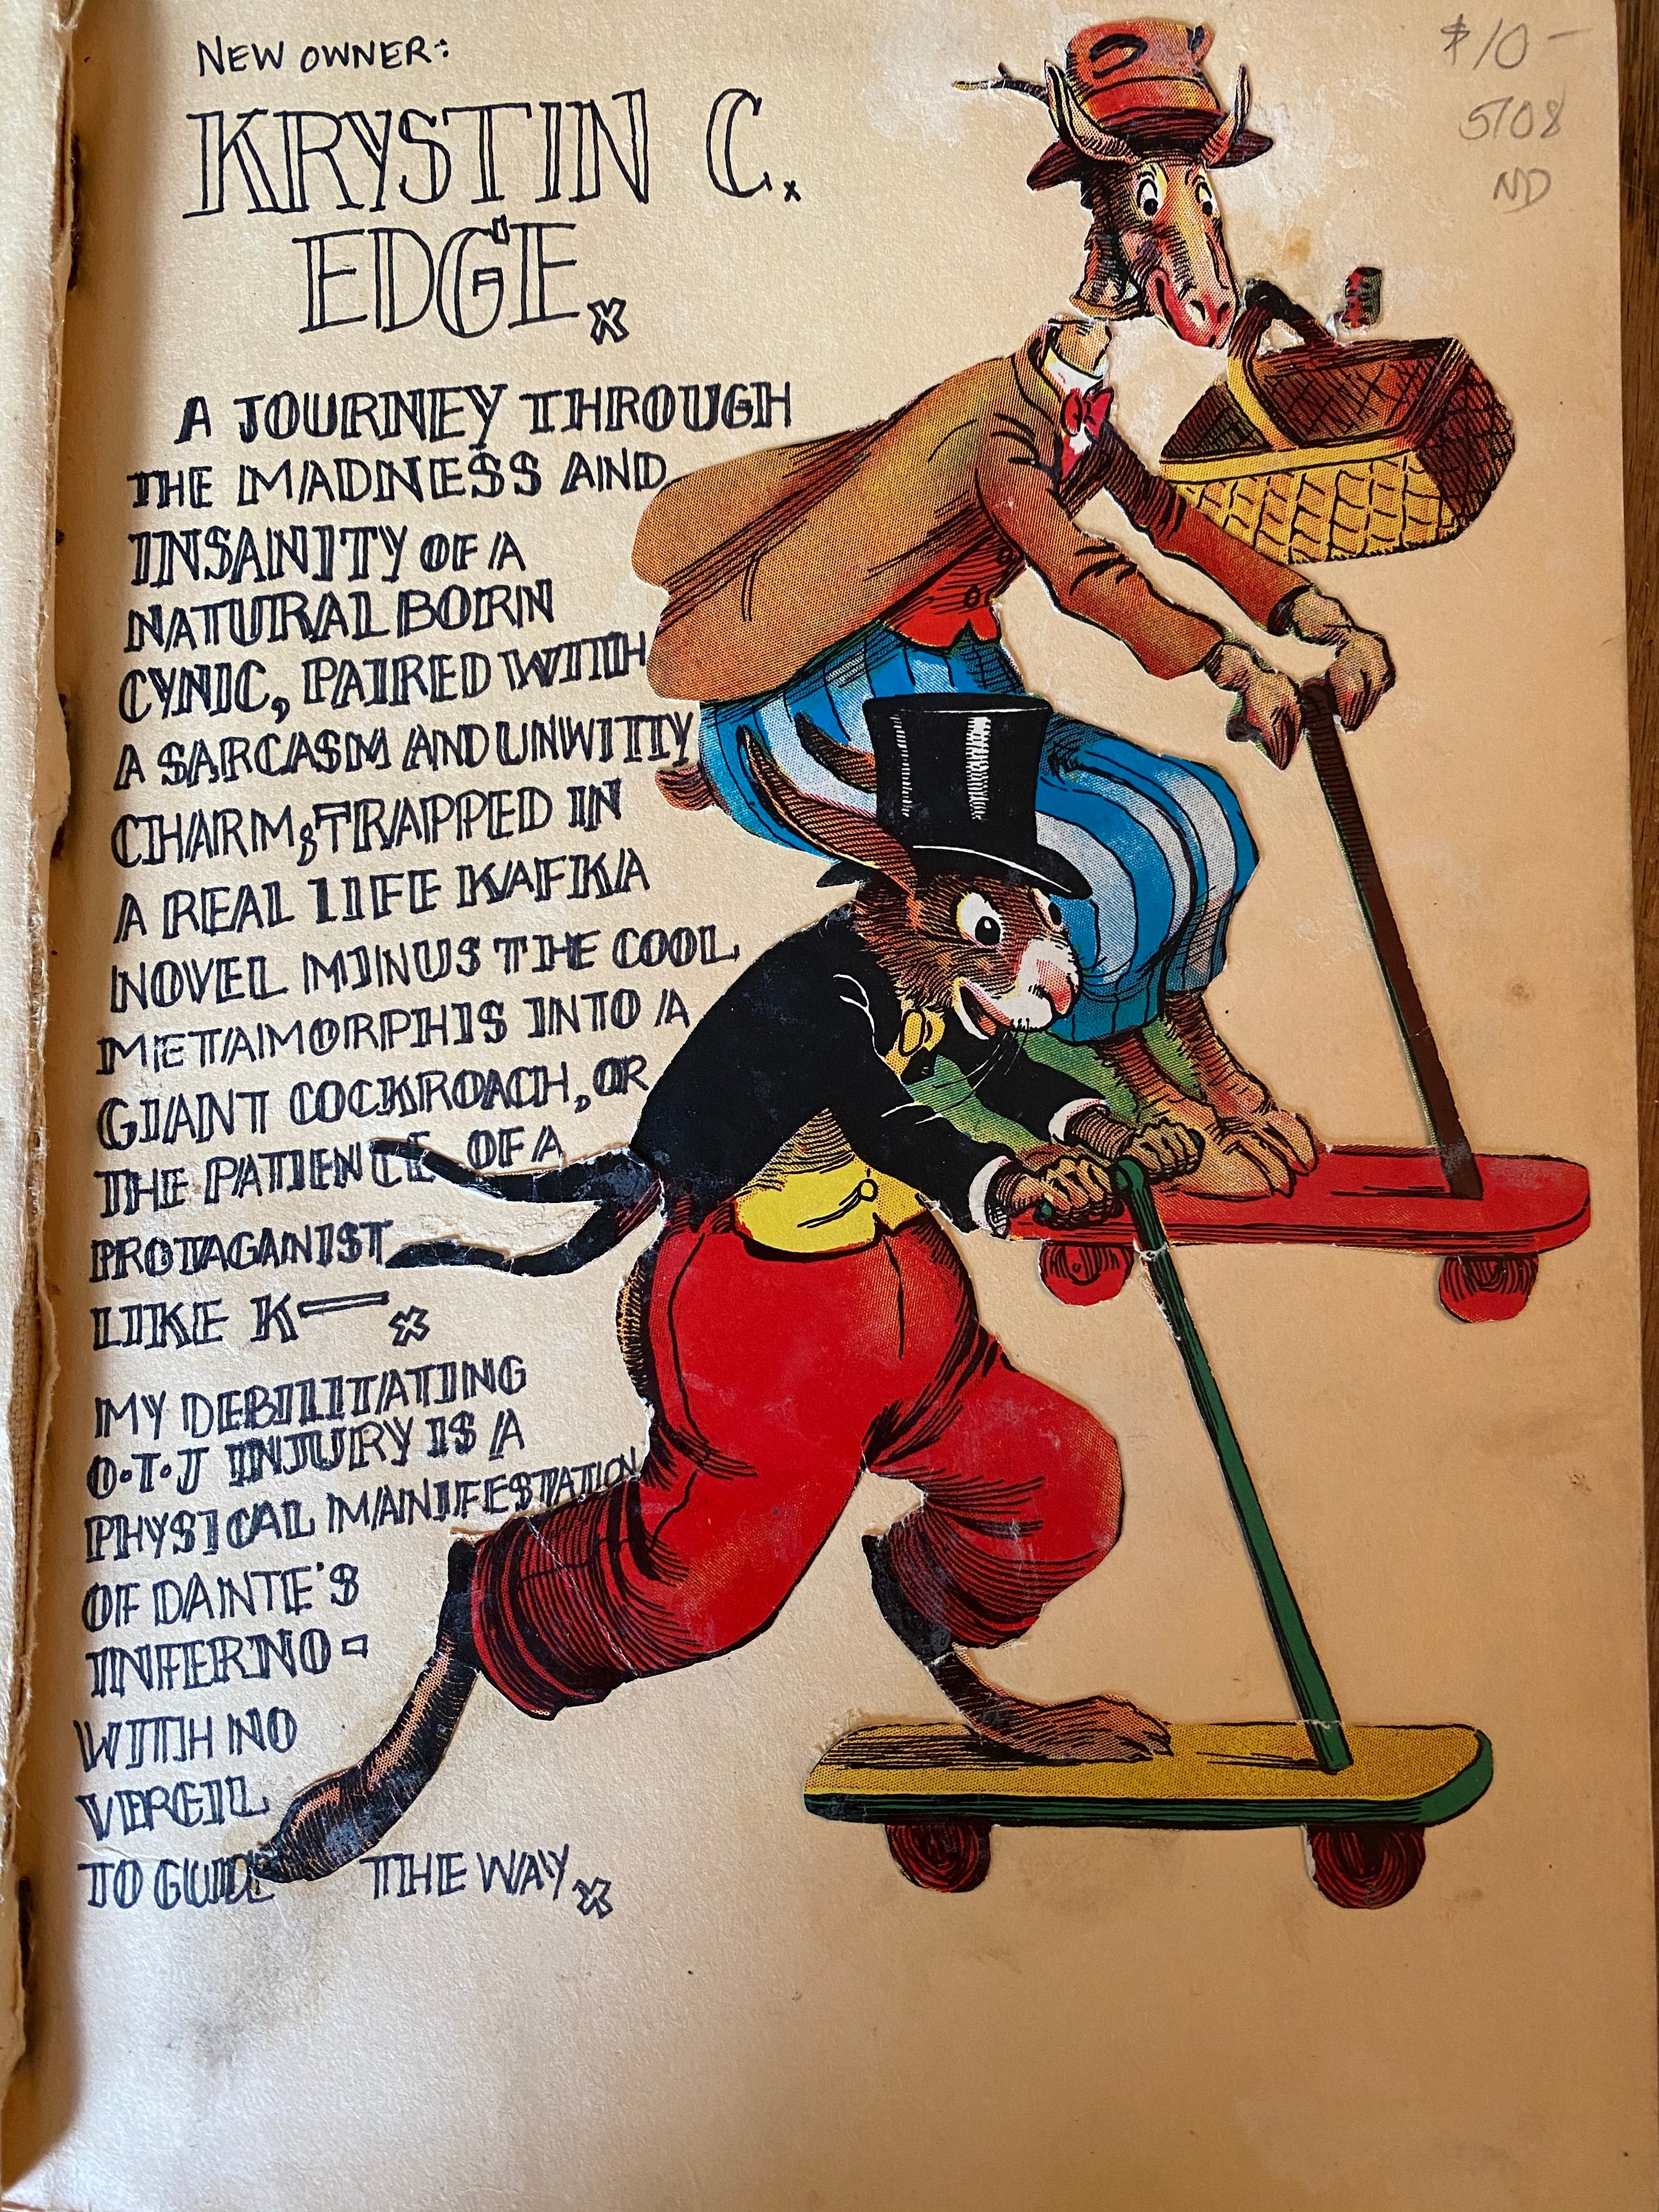 NEW OWNER:
KRYSTIN C.
EDGE.
A JOURNEY THROUGH
THE MADNESS AND
INSANITY OF A
NATURAL BORN
CYNIC, PAIRED WITH
A SARCASM AND UNWITTY
CHARM; TRAPPED IN
A REAL LIFE KAFKA
NOVEL MINUS THE COOL
METAMORPHIS INTO A
GIANT COCKROACH, OR
THE PATIENCE OF A
PROTAGANIST
LIKE K—.
MY DEBILITATING
O.T.J INJURY IS A
PHYSICAL MANIFESTATION
OF DANTE'S
INFERNO-
WITH NO
VERGIL
TO GUIDE THE WAY.
$10-
5/08
ND